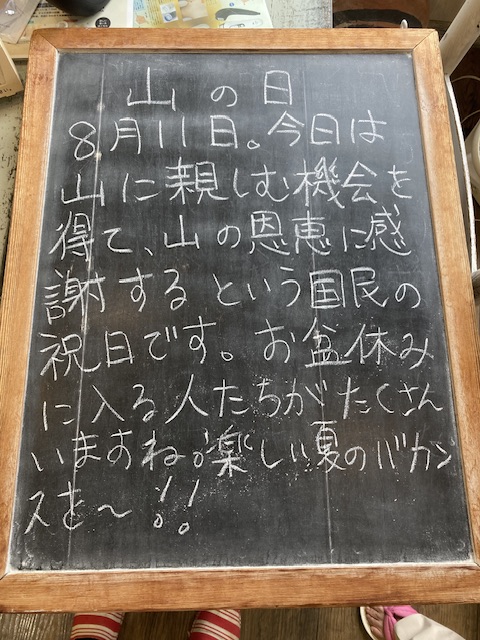 山の日
8月11日。今日は
山に親しむ機会を
得て、山の恩恵に感
謝するという国民の
祝日です。お盆休み
に入る人たちがたくさん
いますね。楽しい夏のバカン
スを〜!!